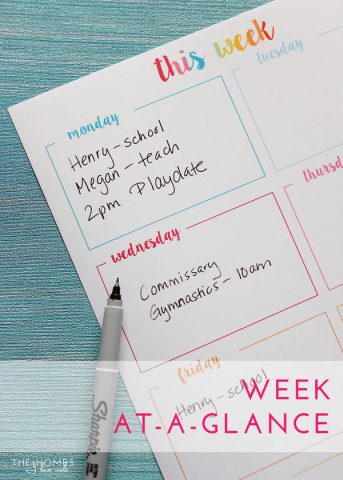 this week
monday
Henry - school
Megan - teach
2pm Playdate
tuesday
wednesday
Commissary
Gymnastics - 10am
thursd
friday
Henry - school
WEEK
AT-A-GLANCE
Sharpie
THE HOMES